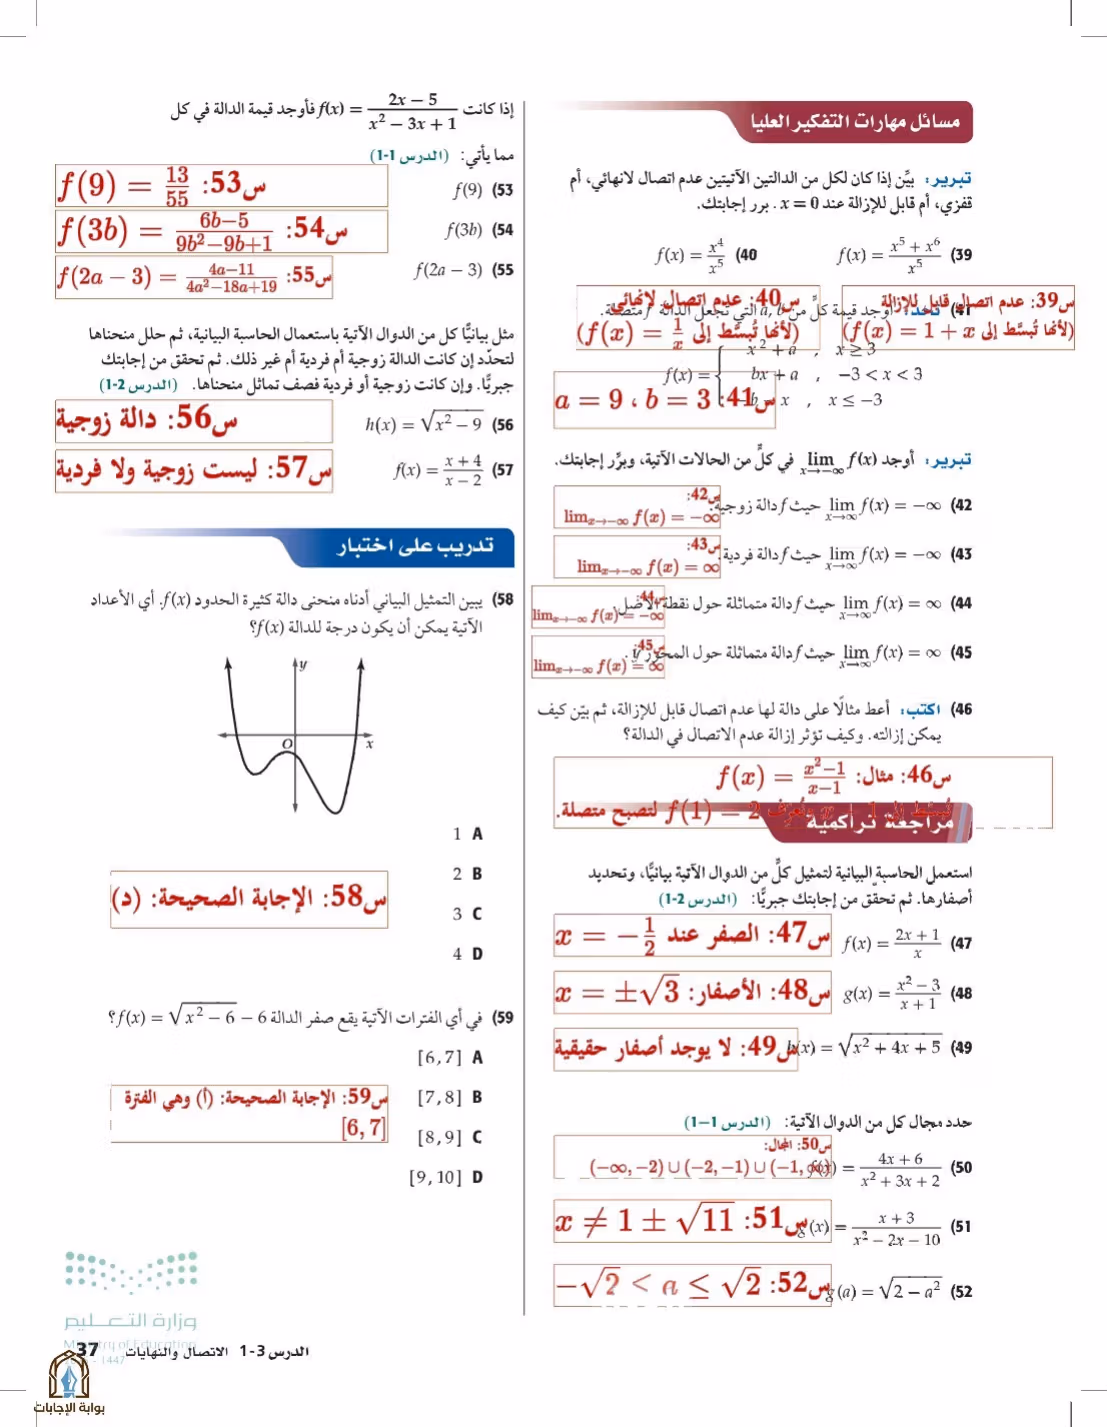 مسائل مهارات التفكير العليا
تبرير: بيّن إذا كان لكل من الدالتين الآتيتين عدم اتصال لانهائي، أم
قفزي، أم قابل للإزالة عند x = 0 . برر إجابتك.
(39 f(x) = \frac{x^5 + x^6}{x^5}
(40 f(x) = \frac{x^4}{x^5}
س39: عدم اتصال قابل للإزالة
(لأنها تُبسَّط إلى f(x) = 1 + x)
س40: عدم اتصال لانهائي
(لأنها تُبسَّط إلى f(x) = \frac{1}{x})
(41 تحدٍّ: أوجد قيمة كلٍّ من a, b التي تجعل الدالة f متصلة.
f(x) = { x^2 + a , x ≥ 3
bx + a , −3 < x < 3
− x , x ≤ −3
س41: a = 9 ، b = 3
تبرير: أوجد \lim_{x→−∞} f(x) في كلٍّ من الحالات الآتية، وبرِّر إجابتك.
(42 \lim_{x→∞} f(x) = −∞ حيث f دالة زوجية.
س42:
lim_{x→−∞} f(x) = −∞
(43 \lim_{x→∞} f(x) = −∞ حيث f دالة فردية.
س43:
lim_{x→−∞} f(x) = ∞
(44 \lim_{x→∞} f(x) = ∞ حيث f دالة متماثلة حول نقطة الأصل.
س44:
lim_{x→−∞} f(x) = −∞
(45 \lim_{x→∞} f(x) = ∞ حيث f دالة متماثلة حول المحور y.
س45:
lim_{x→−∞} f(x) = ∞
(46 اكتب: أعط مثالًا على دالة لها عدم اتصال قابل للإزالة، ثم بيّن كيف
يمكن إزالته. وكيف تؤثر إزالة عدم الاتصال في الدالة؟
س46: مثال: f(x) = \frac{x^2−1}{x−1}
تُبسَّط إلى x + 1 f(1) = 2 لتصبح متصلة.
مراجعة تراكمية
استعمل الحاسبة البيانية لتمثيل كلٍّ من الدوال الآتية بيانيًّا، وتحديد
أصفارها. ثم تحقّق من إجابتك جبريًّا: (الدرس 2-1)
(47 f(x) = \frac{2x + 1}{x}
س47: الصفر عند x = −\frac{1}{2}
(48 g(x) = \frac{x^2 − 3}{x + 1}
س48: الأصفار: x = ±√3
(49 h(x) = √(x^2 + 4x + 5)
س49: لا يوجد أصفار حقيقية
حدد مجال كل من الدوال الآتية: (الدرس 1–1)
(50 f(x) = \frac{4x + 6}{x^2 + 3x + 2}
س50: المجال:
(−∞, −2) ∪ (−2, −1) ∪ (−1, ∞)
(51 g(x) = \frac{x + 3}{x^2 − 2x − 10}
س51: x ≠ 1 ± √11
(52 g(a) = √(2 − a^2)
س52: −√2 < a ≤ √2
إذا كانت f(x) = \frac{2x − 5}{x^2 − 3x + 1} فأوجد قيمة الدالة في كل
مما يأتي: (الدرس 1-1)
(53 f(9)
س53: f(9) = \frac{13}{55}
(54 f(3b)
س54: f(3b) = \frac{6b−5}{9b^2−9b+1}
(55 f(2a − 3)
س55: f(2a − 3) = \frac{4a−11}{4a^2−18a+19}
مثل بيانيًّا كل من الدوال الآتية باستعمال الحاسبة البيانية، ثم حلل منحناها
لتحدّد إن كانت الدالة زوجية أم فردية أم غير ذلك. ثم تحقق من إجابتك
جبريًّا. وإن كانت زوجية أو فردية فصف تماثل منحناها. (الدرس 2-1)
(56 h(x) = √(x^2 − 9)
س56: دالة زوجية
(57 f(x) = \frac{x + 4}{x − 2}
س57: ليست زوجية ولا فردية
تدريب على اختبار
(58 يبين التمثيل البياني أدناه منحنى دالة كثيرة الحدود f(x). أي الأعداد
الآتية يمكن أن يكون درجة للدالة f(x)؟
y
O
x
1 A
2 B
3 C
4 D
س58: الإجابة الصحيحة: (د)
(59 في أي الفترات الآتية يقع صفر الدالة f(x) = √(x^2 − 6) − 6؟
[6,7] A
[7,8] B
[8,9] C
[9,10] D
س59: الإجابة الصحيحة: (أ) وهي الفترة
[6, 7]
وزارة التعليم
Ministry of Education
1447
الدرس 3-1 الاتصال والنهايات 37
بوابة الإجابات